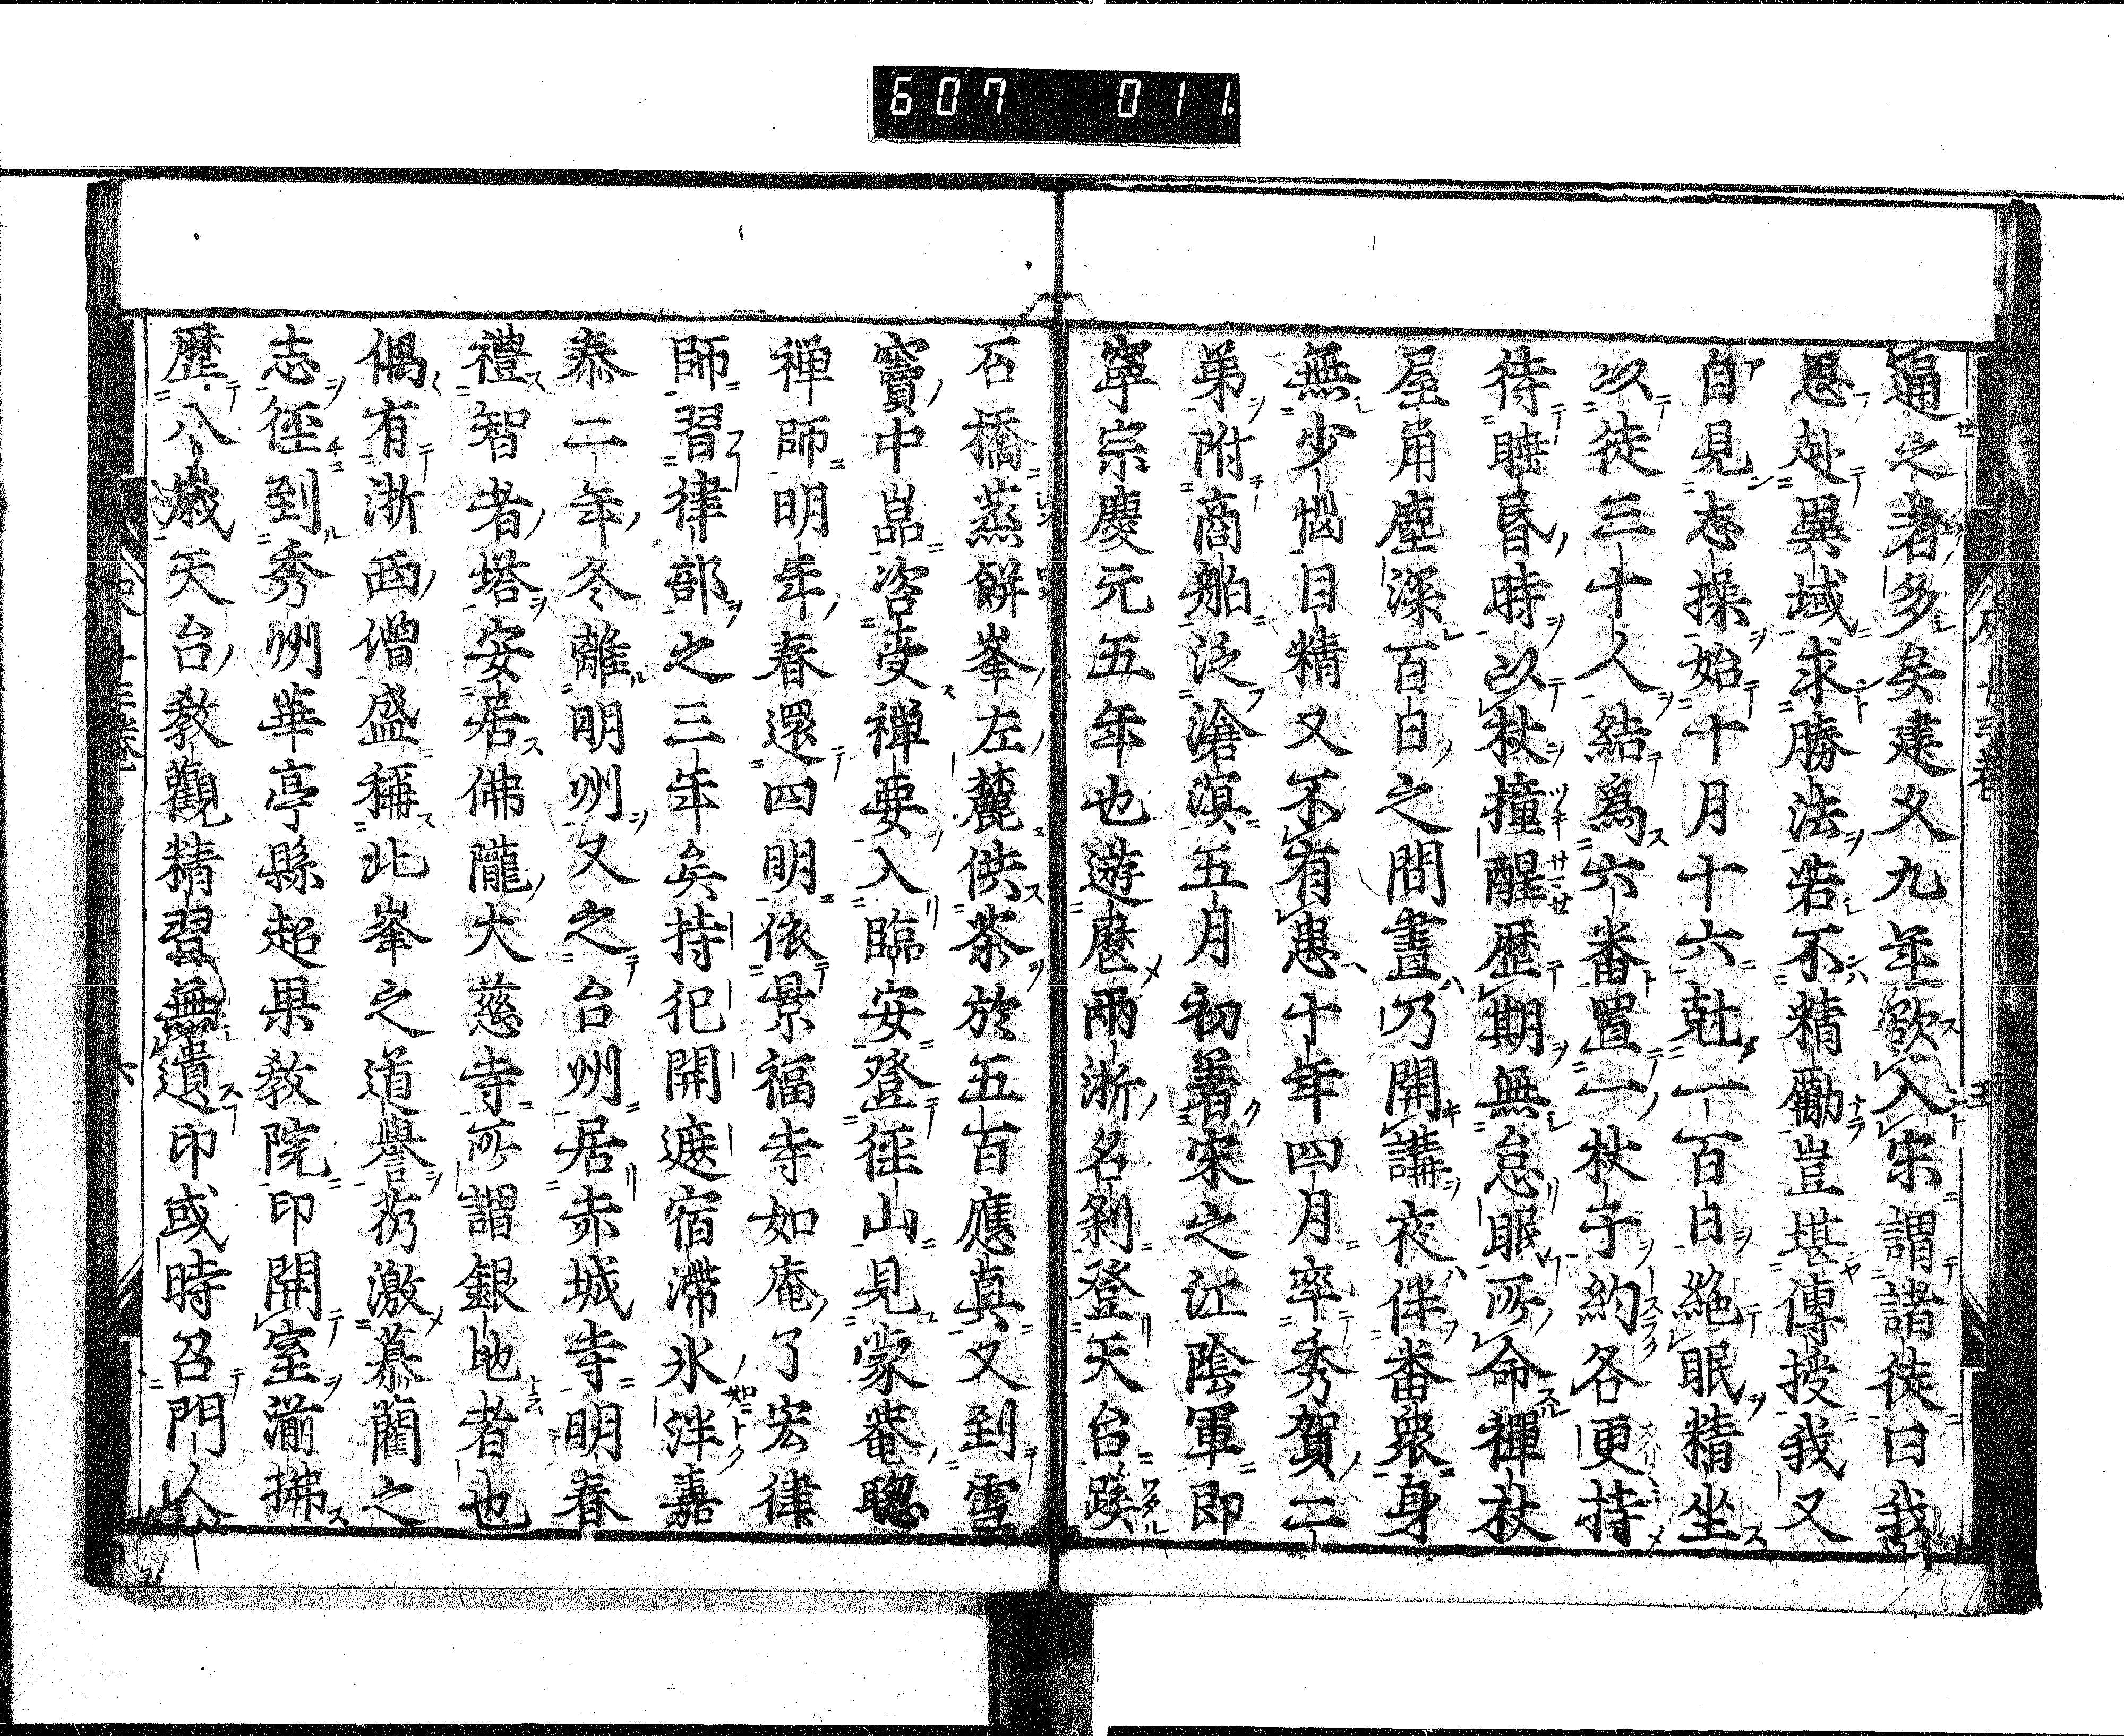 607 011
逼之者多矣建久九年欲入宋謂諸徒曰我
思赴異域求勝法若不精勵豈堪傳授我又
自見志操始十月十六尅一百日絶眠精坐
以徒三十人結爲六番置一杖子約各更持
待睡昏時以杖撞醒歷期無怠眠所命禪杖
屋角塵深百日之間晝乃開講夜伴番衆身
無少惱目精又不有患十年四月率秀賀二
弟附商舶泛滄溟五月初著宋之江陰軍即
寧宗慶元五年也遊歷兩浙名剎登天台踐
石橋蒸餅峯左麓供茶於五百應真又到雪
竇中嵓咨受禪要入臨安登徑山見蒙菴聰
禅師明年春還四明依景福寺如庵了宏律
師習律部之三年矣持犯開遮宿滯氷泮嘉
泰二年冬離明州又之台州居赤城寺明春
禮智者塔安居佛隴大慈寺所謂銀地者也
偶有浙西僧盛稱北峯之道譽彷激慕藺之
志徑到秀州華亭縣超果教院印開室湔拂
歷八歲天台教觀精習無遺印或時召門人